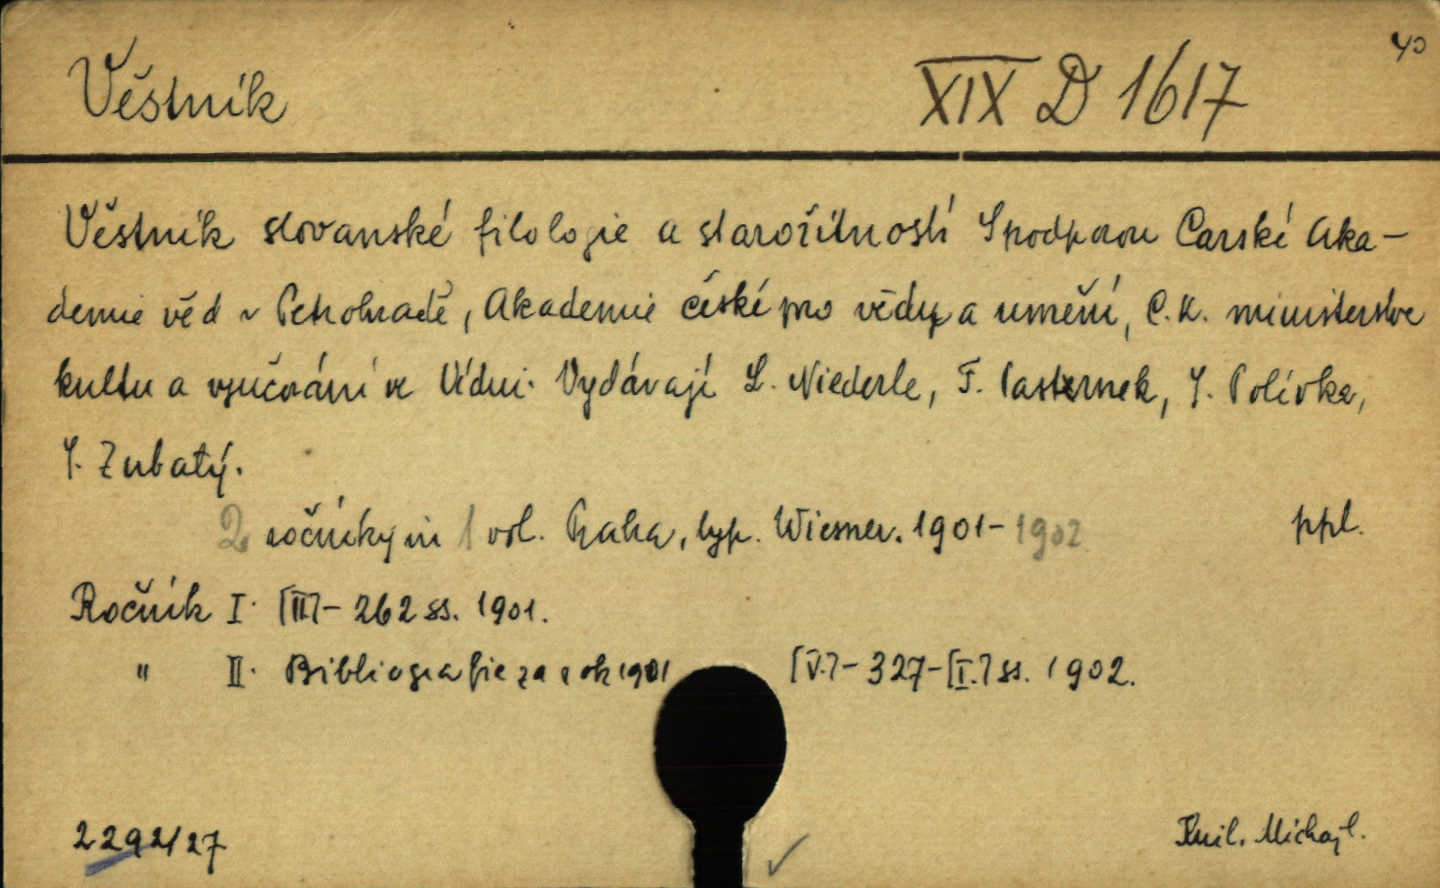 Věstník XIX D 1617 40
Věstník slovanské filologie a starožitností S podporou Carské Aka-
demie věd v Petrohradě, Akademie české pro vědy a umění, C.K. ministerstva
kultu a vyučování ve Vídni. Vydávají L. Niederle, F. Pastrnek, J. Polívka,
J. Zubatý.
2 ročníky in 1 vol. Praha, typ. Wiesner. 1901-1902 ppl.
Ročník I. [III]- 262 ss. 1901.
" II. Bibliografie za rok 1901 [V.]- 327-[I.] ss. 1902.
2292/27 Knih. Michajl.